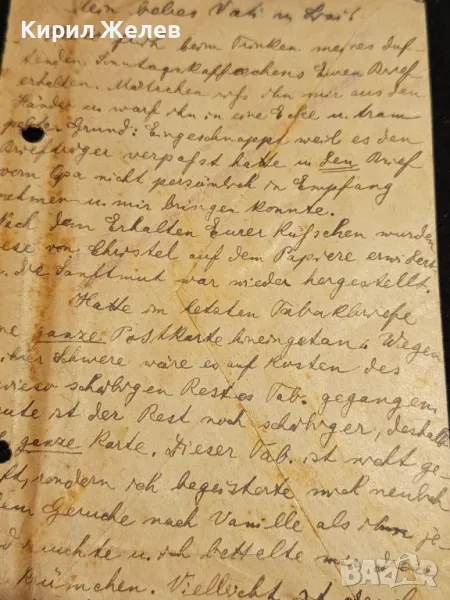 Кирил Желев
Mein liebes Vati u.
beim Trinken meines duf-
tenden Sonntagskaffeechens Euren Brief
erhalten. Mätzchen riß ihn mir aus den
Händen u. warf ihn in eine Ecke u. tram-
Grund: Eingeschnappt weil es den
Briefträger verpaßt hatte u. den Brief
vom Opa nicht persönlich in Empfang
nehmen u. mir bringen konnte.
Nach dem Erhalten Eurer Küßchen wurden
von Christel auf dem Papiere erwidert
u. die Sanftmut war wieder hergestellt.
Hatte im letzten Tabakbriefe
ne ganze Postkarte hineingetan. Wegen
Schwere wäre es auf Kosten des
sowieso schäbigen Restes Tab. gegangen.
eute ist der Rest noch schäbiger, deshalb
ganze Karte. Dieser Tab. ist nicht ge-
ft, sondern ich begeisterte mich neulich
dem Geruche nach Vanille als ihn je-
d rauchte u. ich bettelte mir
Krümchen. Vielleicht ist
bazar.bg